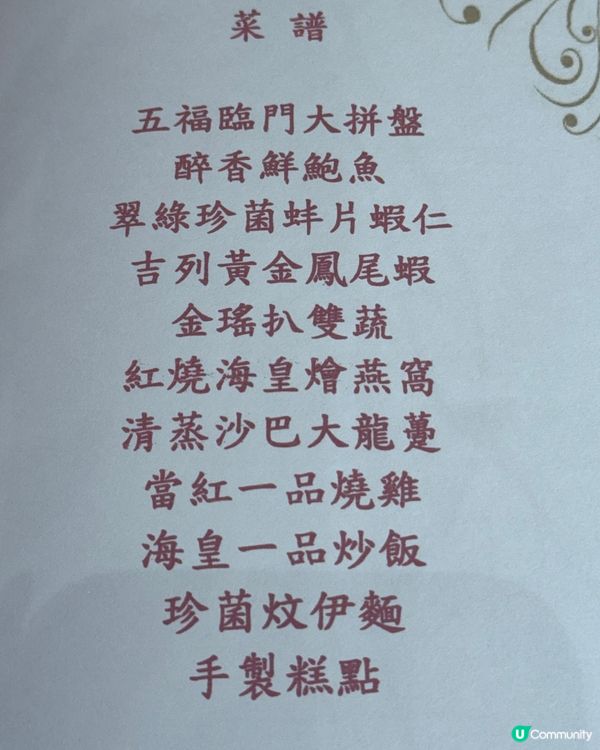 菜譜
五福臨門大拼盤
醉香鮮鮑魚
翠綠珍菌蚌片蝦仁
吉列黃金鳳尾蝦
金瑤扒雙蔬
紅燒海皇燴燕窩
清蒸沙巴大龍躉
當紅一品燒雞
海皇一品炒飯
珍菌炆伊麵
手製糕點
U Community